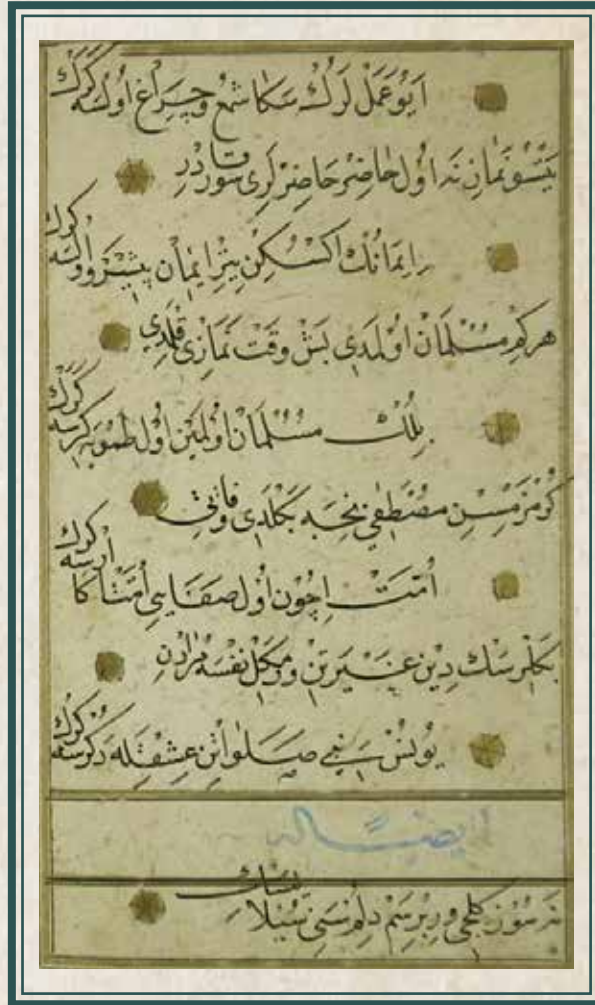 ايو عمل لرك سكا شمع و چراغ اولسه كرك
يتسو نمازنه اول حاضر حاضرلرى سورقادر
ايمانك اكسكن بتر ايمان پيشرو اولسه كرك
هركم مسلمان اولمدى بش وقت نمازى قلمدى
بلك مسلمان اولمين اول طمويه كرسه كرك
كورمزمسن مصطفى نجه بكلدى وفايى
امت اچون اول صفايى امتاكا ارسه كرك
بكلرسك دين غيرتن ومكل نفسه مرادن
يونس نبى صلواتن عشقله دكورسه كرك
ايضا له
نه سوز كلجى وريرسم دلم سنى سيلر